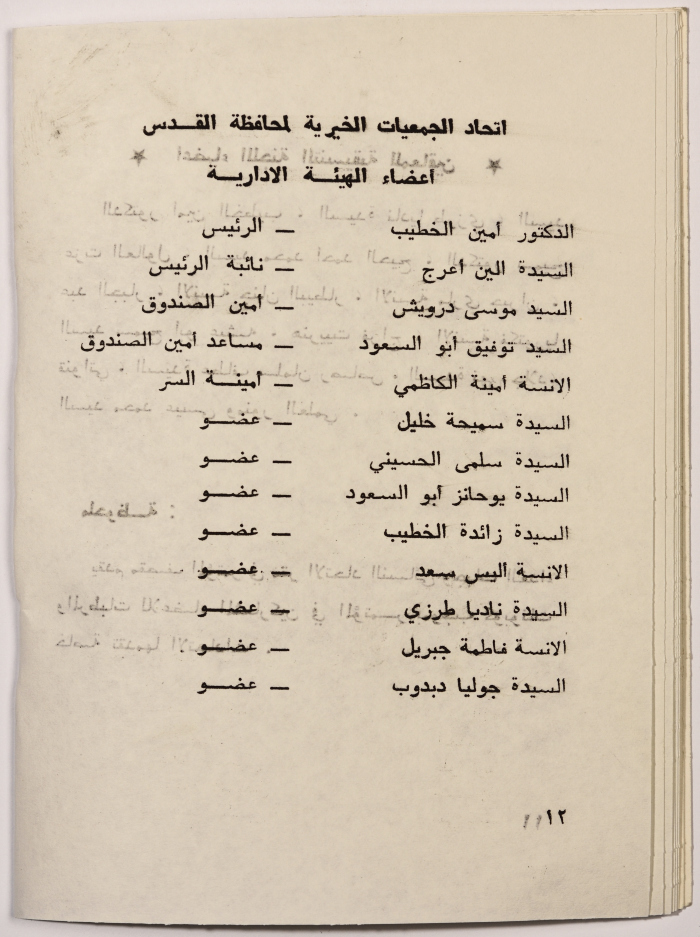 اتحاد الجمعيات الخيرية لمحافظة القدس
أعضاء الهيئة الادارية
الدكتور أمين الخطيب — الرئيس
السيدة الين أعرج — نائبة الرئيس
السيد موسى درويش — أمين الصندوق
السيد توفيق أبو السعود — مساعد أمين الصندوق
الانسة أمينة الكاظمي — أمينة السر
السيدة سميحة خليل — عضو
السيدة سلمى الحسيني — عضو
السيدة يوحانز أبو السعود — عضو
السيدة زائدة الخطيب — عضو
الانسة اليس سعد — عضو
السيدة ناديا طرزي — عضو
الانسة فاطمة جبريل — عضو
السيدة جوليا دبدوب — عضو
١٢